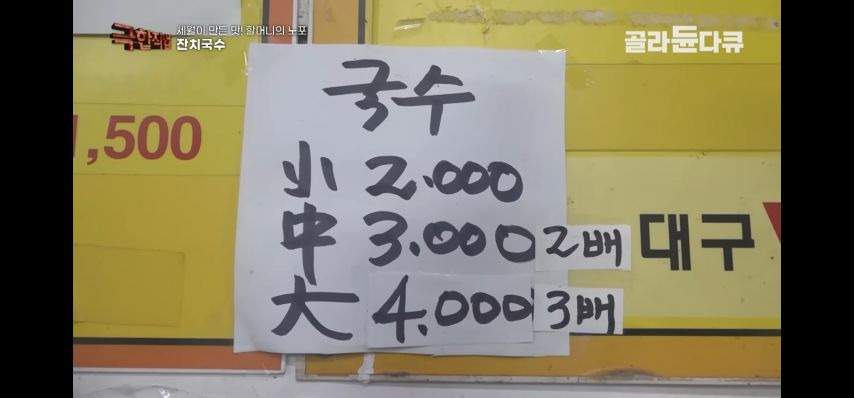 극한직업
세월이 만든 맛! 할머니의 노포
잔치국수
골라듄다큐
1,500
국수
小 2.000
中 3.000 2배
大 4.000 3배
대구